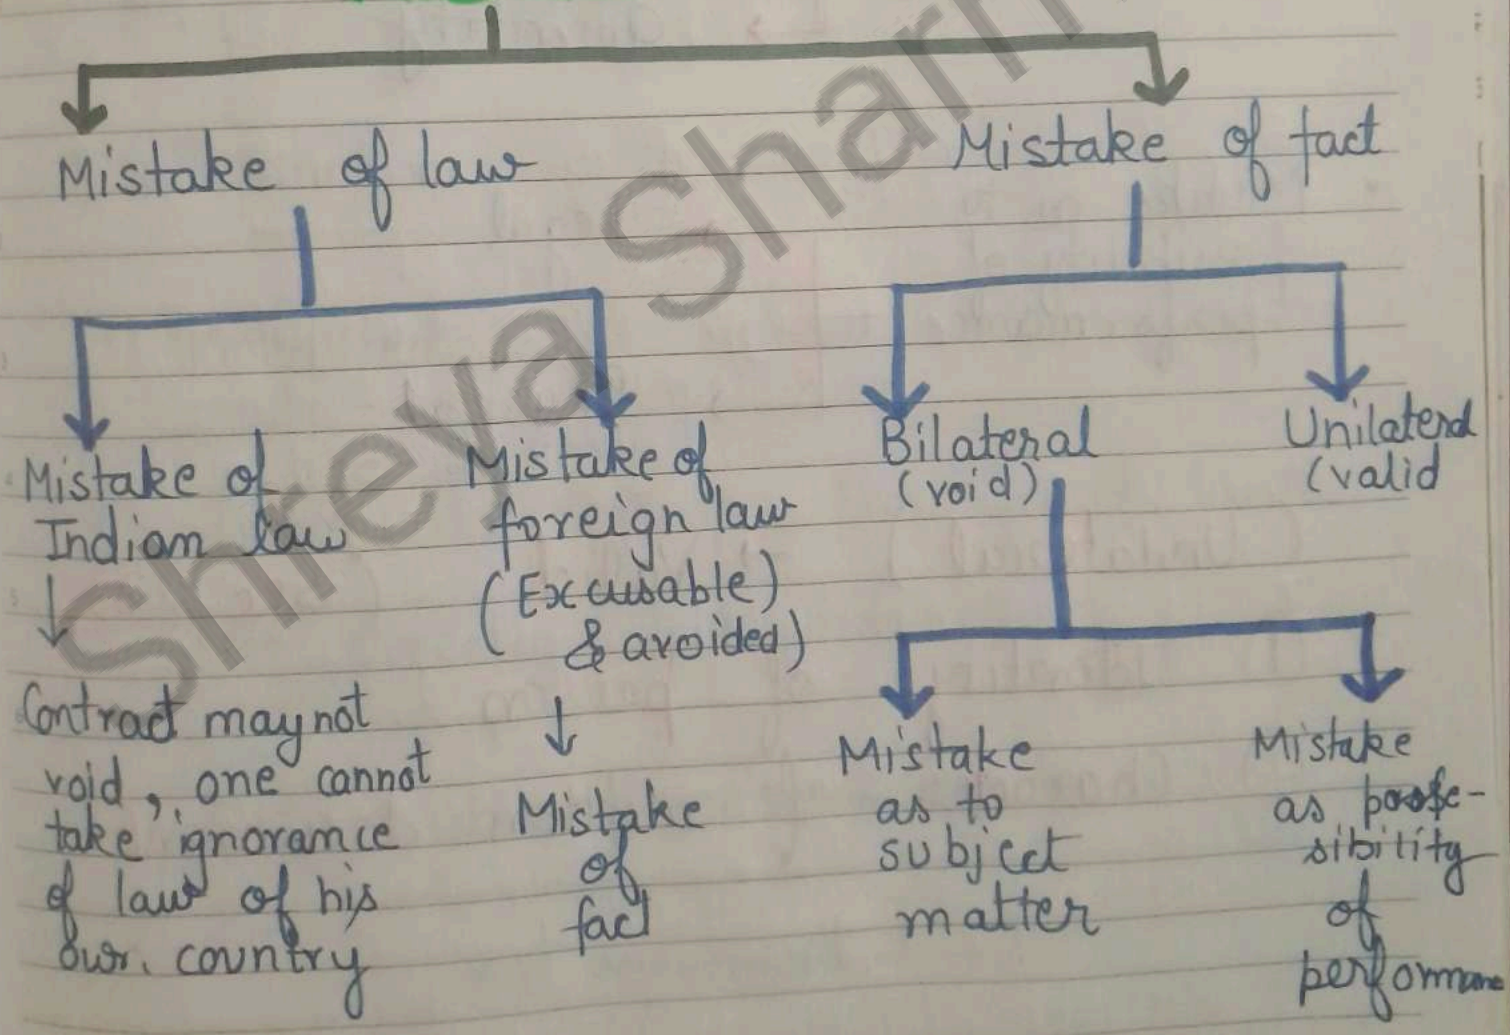 Mistake of law
Mistake of fact
Mistake of
Indian law
Contract may not
void, one cannot
take ignorance
of law of his
own. country
Mistake of
foreign law
(Excusable)
(& avoided)
Mistake
of
fact
Bilateral
(void)
Unilateral
(valid
Mistake
as to
subject
matter
Mistake
as
sibility
of
performance
Shreya Sharm